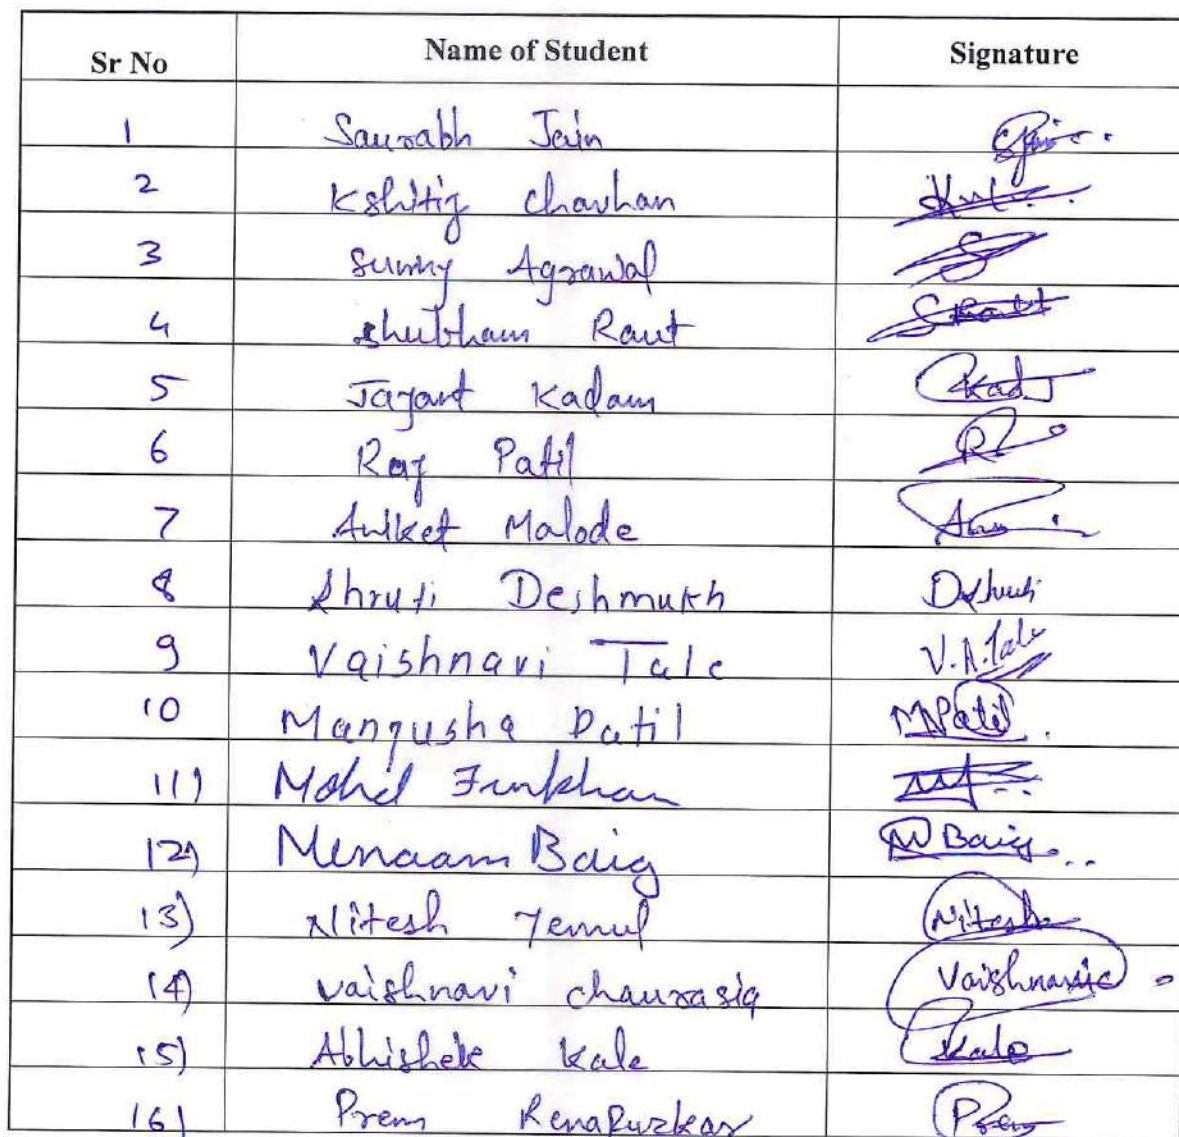 Sr No Name of Student Signature
1 Saurabh Jain
2 Kshitij Chavhan
3 Sunny Agrawal
4 Shubham Raut S Raut
5 Jayant Kadam Kad
6 Raj Patil R
7 Aniket Malode
8 Shruti Deshmukh DShruti
9 Vaishnavi Tale V.A.Tale
10 Manjusha Patil MPatil
11) Mohd Furkhan
12) Menaam Baig M Baig
13) Nitesh Yemul Nitesh
14) Vaishnavi Chaurasia Vaishnavi C
15) Abhishek Kale Kale
16) Prem Prem